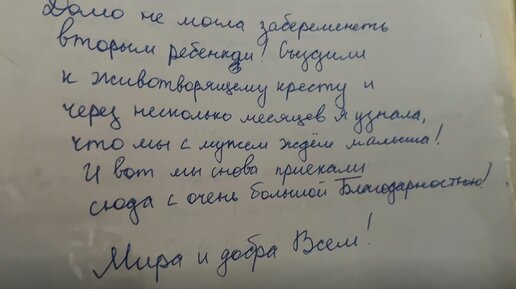 Долго не могла забеременеть
вторым ребенком! Съездили
к животворящему кресту и
через несколько месяцев я узнала,
что мы с мужем ждём малыша!
И вот мы снова приехали
сюда с очень большой Благодарностью!
Мира и добра Всем!